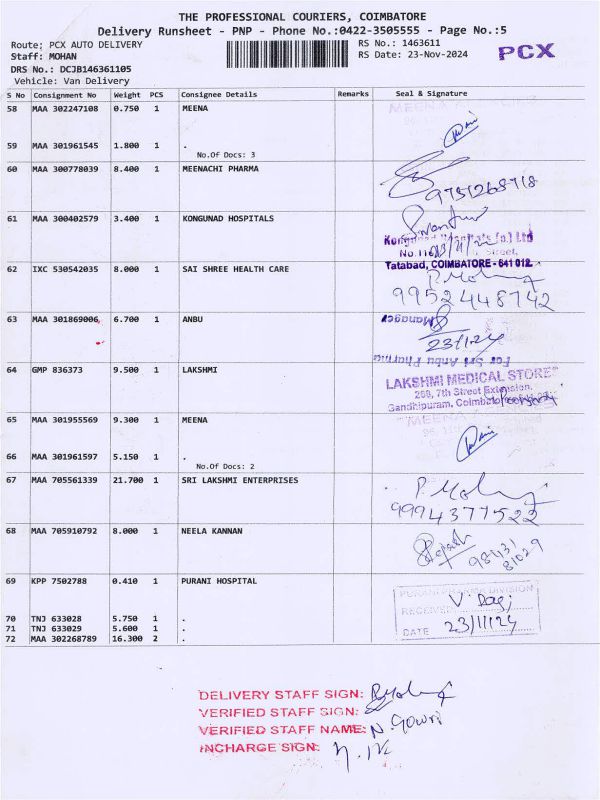 THE PROFESSIONAL COURIERS, COIMBATORE
Delivery Runsheet - PNP - Phone No.:0422-3505555 - Page No.:5
Route; PCX AUTO DELIVERY RS No.: 1463611
Staff: MOHAN RS Date: 23-Nov-2024 PCX
DRS No.: DCJB146361105
Vehicle: Van Delivery
S No Consignment No Weight PCS Consignee Details Remarks Seal & Signature
58 MAA 302247108 0.750 1 MEENA
59 MAA 301961545 1.800 1 .
No.Of Docs: 3
60 MAA 300778039 8.400 1 MEENACHI PHARMA
9751268718
61 MAA 300402579 3.400 1 KONGUNAD HOSPITALS
Tatabad, COIMBATORE - 641 012.
62 IXC 530542035 8.000 1 SAI SHREE HEALTH CARE
9952448742
63 MAA 301869006 6.700 1 ANBU
Manager
23/11/24
For Sri Anbu Pharma
64 GMP 836373 9.500 1 LAKSHMI
LAKSHMI MEDICAL STORE
268, 7th Street Extension,
Gandhipuram,
65 MAA 301955569 9.300 1 MEENA
66 MAA 301961597 5.150 1 .
No.Of Docs: 2
67 MAA 705561339 21.700 1 SRI LAKSHMI ENTERPRISES
9994377522
68 MAA 705910792 8.000 1 NEELA KANNAN
98431
81029
69 KPP 7502788 0.410 1 PURANI HOSPITAL
PURANI PHARMA DIVISION
RECEIVED
DATE 23/11/24
70 TNJ 633028 5.750 1 .
71 TNJ 633029 5.600 1 .
72 MAA 302268789 16.300 2 .
DELIVERY STAFF SIGN:
VERIFIED STAFF SIGN:
VERIFIED STAFF NAME: N. Gowri
INCHARGE SIGN: